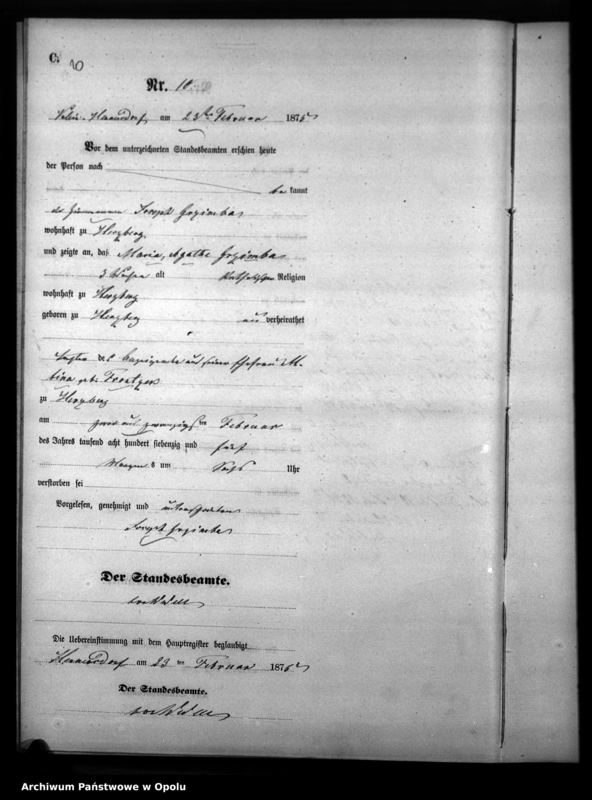 C.
10
Nr. 10
am 23ten Februar 1875
Vor dem unterzeichneten Standesbeamten erschien heute
der Person nach
be kannt
Joseph Grzimba
wohnhaft zu Herzberg
und zeigte an, daß Maria, Agathe Grzimba
3 Wochen alt katholischer Religion
wohnhaft zu Herzberg
geboren zu Herzberg verheirathet
Tochter des und seiner Ehefrau
geb.
zu Herzberg
am zwei und zwanzigsten Februar
des Jahres tausend acht hundert siebenzig und fünf
Morgens um sechs Uhr
verstorben sei
Vorgelesen, genehmigt und unterschrieben
Joseph Grzimba
Der Standesbeamte.
Die Uebereinstimmung mit dem Hauptregister beglaubigt
am 23 ten Februar 1875
Der Standesbeamte.
Archiwum Państwowe w Opolu